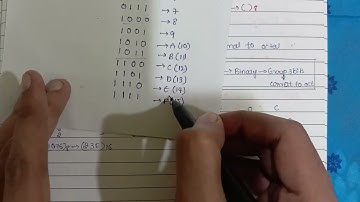 0111 → 7
1000 → 8
1001 → 9
1010 → A(10)
1011 → B(11)
1100 → C(12)
1101 → D(13)
1110 → E(14)
1111
→( )8
mal to octal
→ Binary → Group 3 bit
convert to oct
C